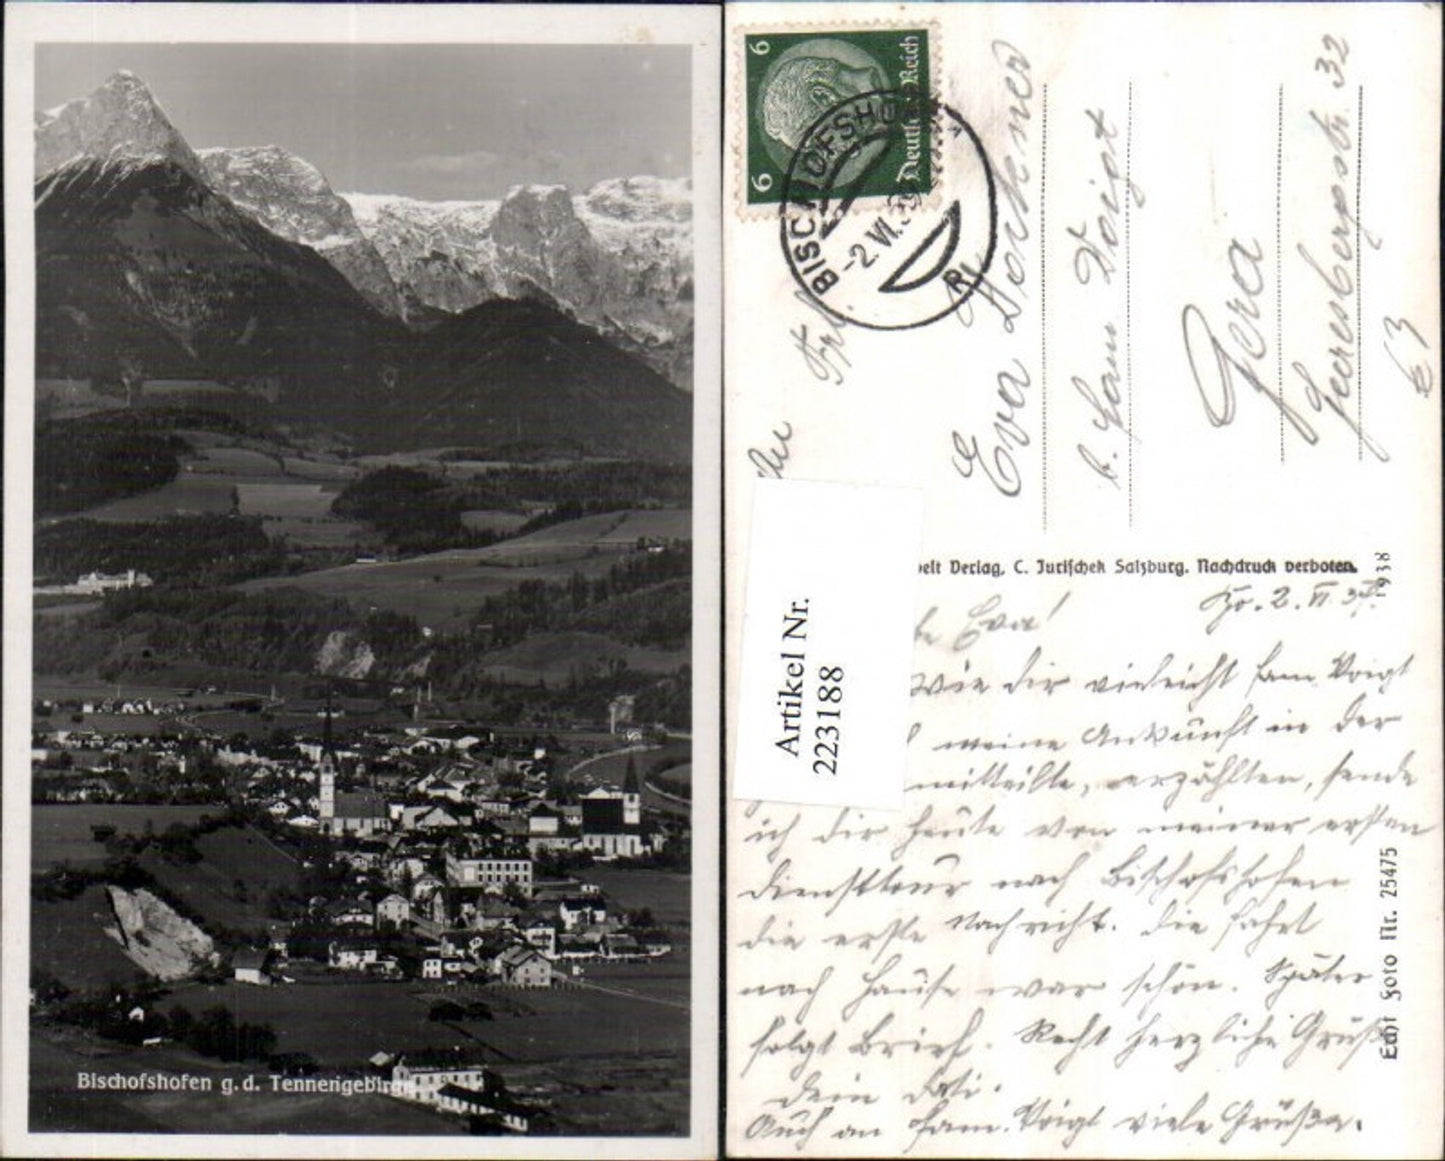 Bischofshofen g.d. Tennengebirge
6
6
Deutsches Reich
BISCHOFSHOFEN
-2.VI.39
Frl.
Eva
b. Fam. Voigt
Gera
Heeresbergstr. 32
€3
Artikel Nr.
223188
Verlag, C. Jurischek Salzburg. Nachdruck verboten.
1938
Echt Foto Nr. 25475
Eva!
2. VI 39.
Wie dir vielleicht Fam. Voigt
meine Ankunft in der
mitteilte, erzählten, sende
ich dir heute von meiner ersten
Diensttour nach Bischofshofen
die erste Nachricht. Die Fahrt
nach Hause war schön. Später
folgt Brief. Recht herzliche Grüße
Dein
Auch an Fam. Voigt viele Grüße.